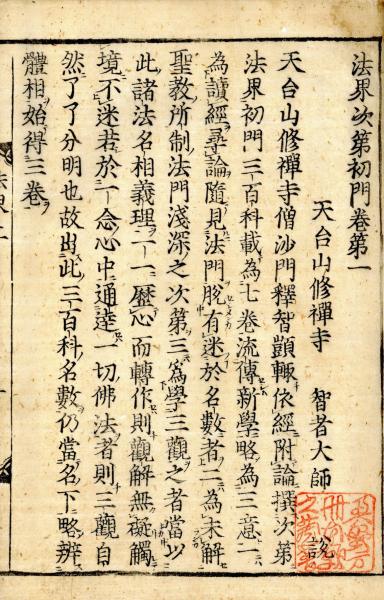 法界次第初門卷第一
天台山修禪寺　智者大師　說
天台山修禪寺僧沙門釋智顗輙依經附論撰次第
法界初門三百科載為七卷流傳新學略為三意一
為讀經尋論隨見法門脫有迷於名數者二為未解
聖教所制法門淺深之次第三為學三觀之者當以
此諸法名相義理一一歷心而轉作則觀解無礙觸
境不迷若於一念心中通達一切佛法者則三觀自
然了了分明也故出此三百科名數仍當名下略辨
體相始得三卷